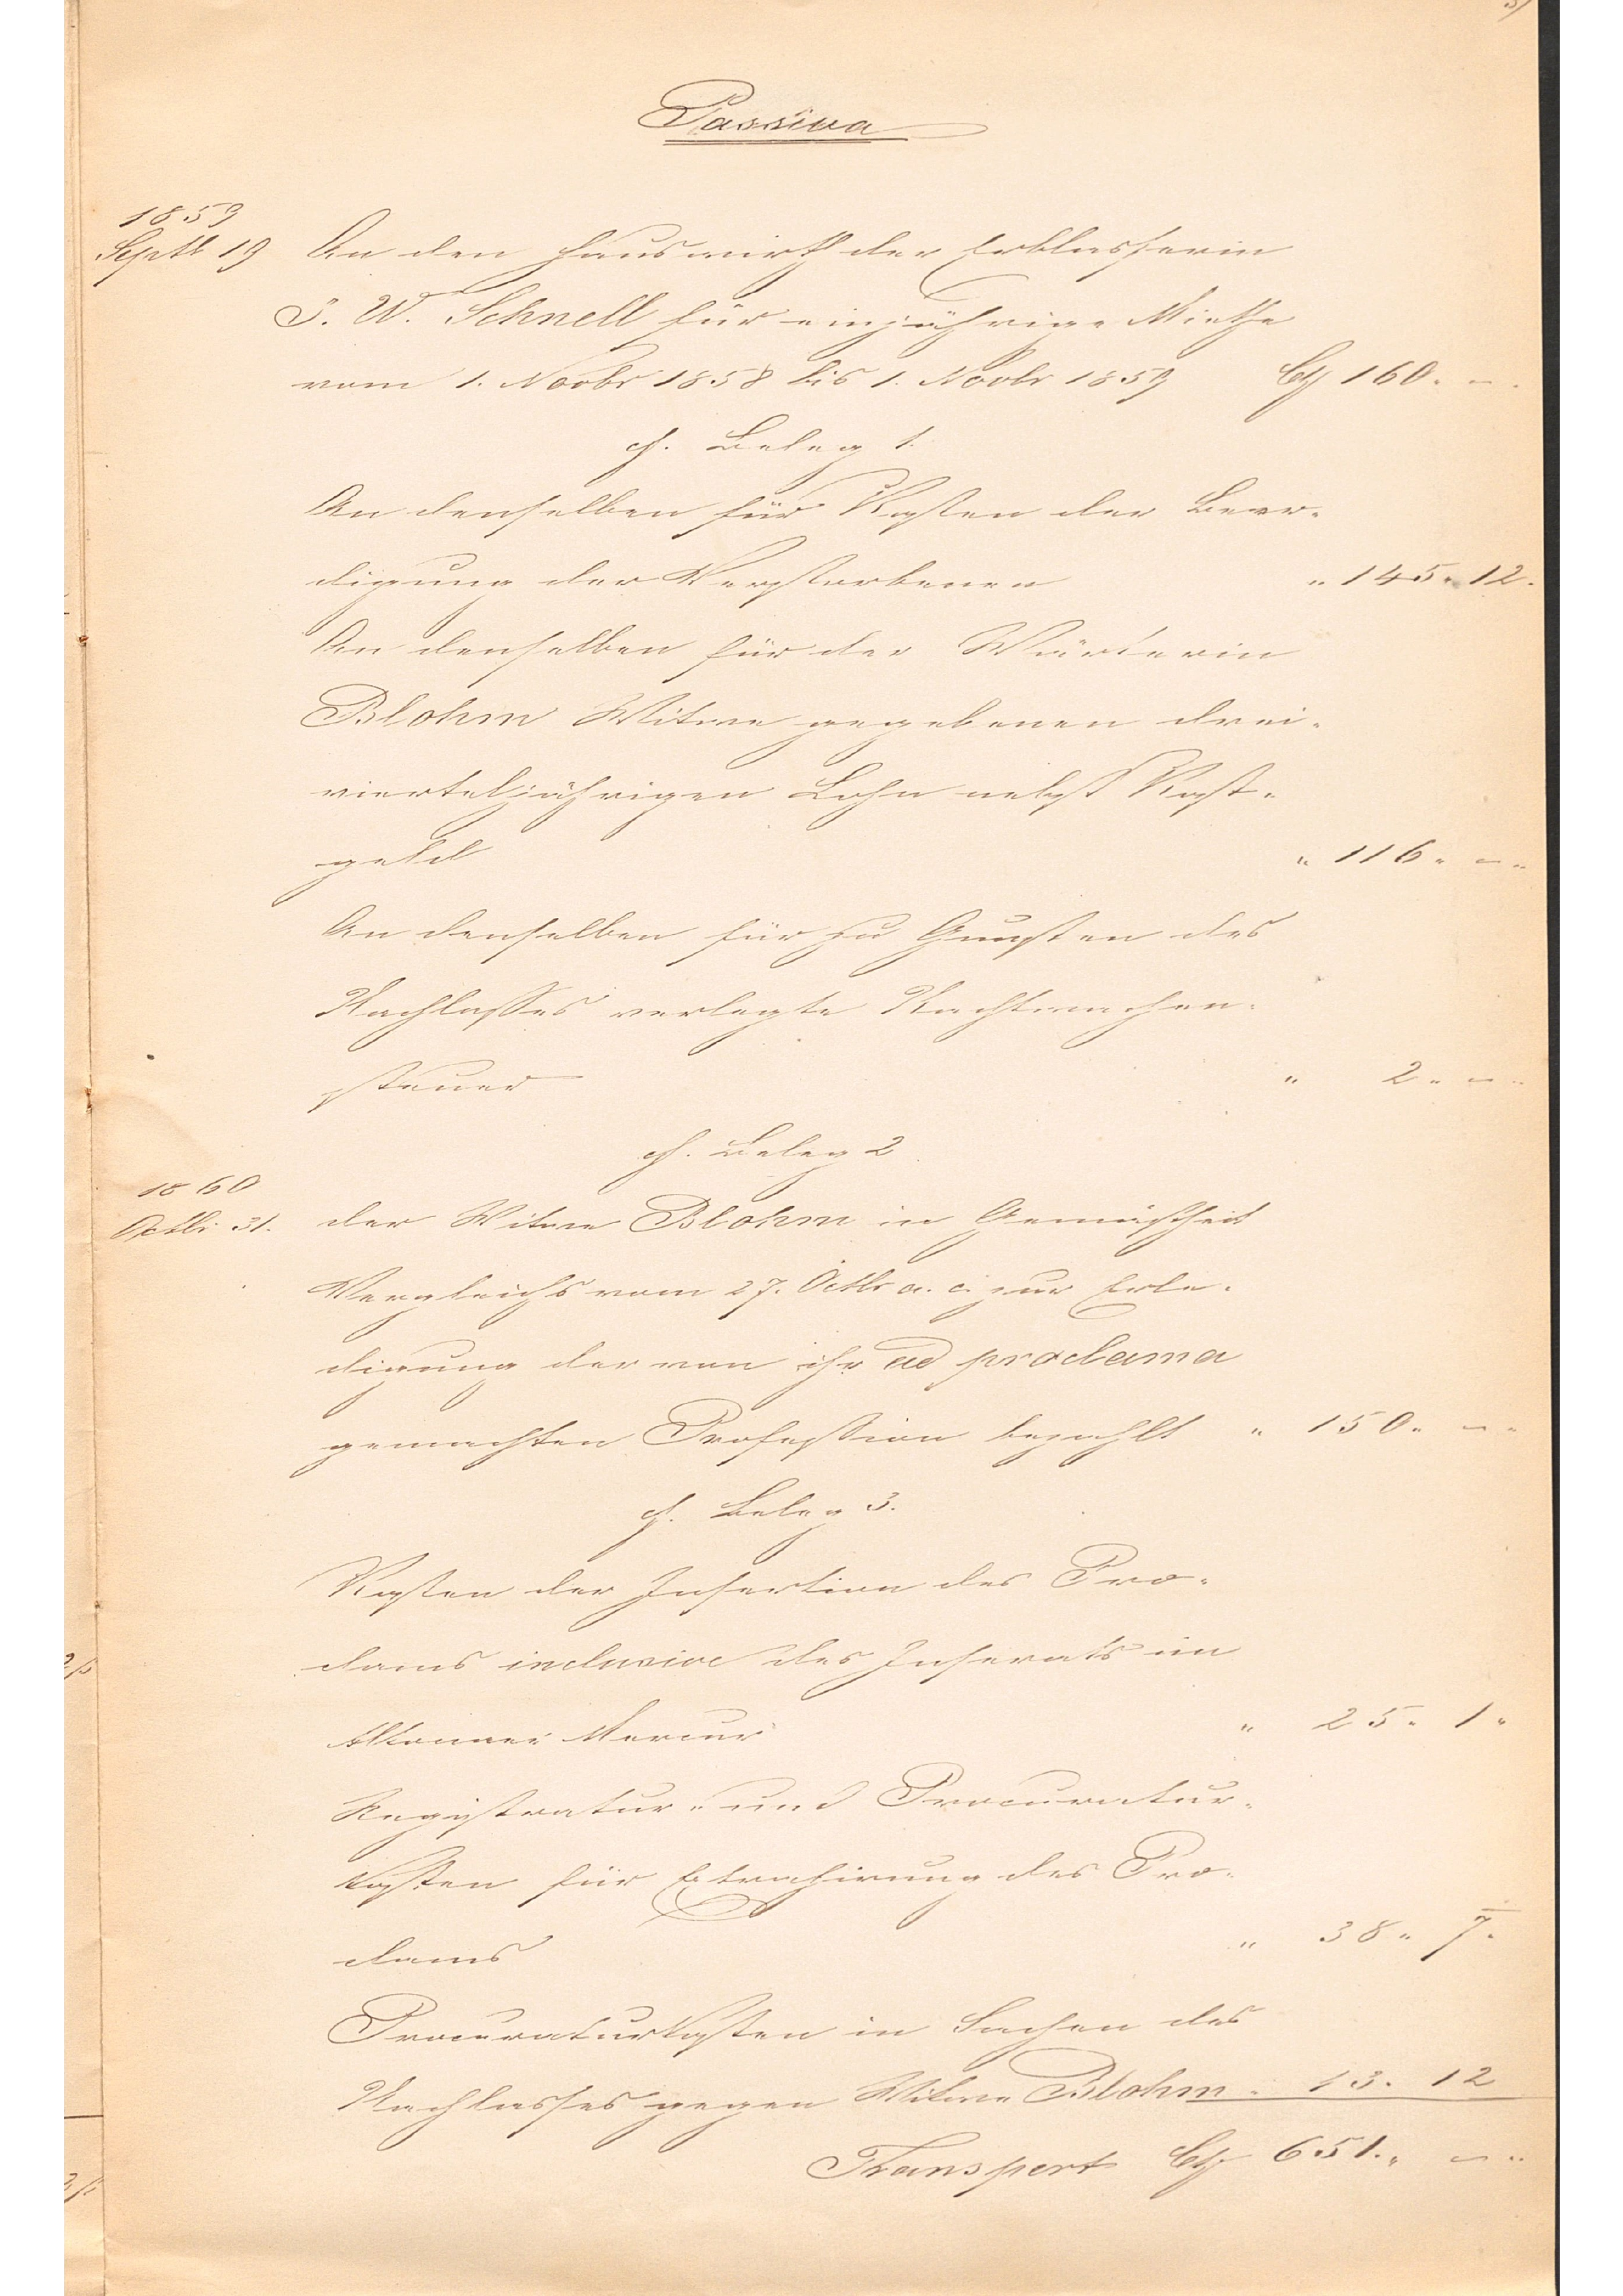 Passiva
1859
Septb 19 An den Hauswirth der Erblasserin
J. W. Schnell für einjährige Miethe
vom 1. Novbr 1858 bis 1. Novbr 1859 C 160. –.
cf. Beleg 1.
An denselben für Kosten der Beer-
digung der Verstorbenen " 145. 12.
An denselben für der Wärterin
Blohm Witwe gegebenen drei-
vierteljährigen Lohn nebst Kost-
geld " 116. –.
An denselben für zu Gunsten des
Nachlasses verlegte Nachtwachen-
steuer " 2. –.
cf. Beleg 2
1860
Octbr 31. der Witwe Blohm in Gemäßheit
Vergleichs vom 27. Octbr a. c. zur Erle-
digung der von ihr ad proclama
gemachten Profession bezahlt " 150. –.
cf. Beleg 3.
Kosten der Insertion des Pro-
clams inclusive des Inserats im
Altonaer Mercur " 25. 1.
Registratur- und Procuratur-
kosten für Extrahirung des Pro-
clams " 38. 7.
Procuraturkosten in Sachen des
Nachlasses gegen Witwe Blohm " 13. 12
Transport C 651. –.